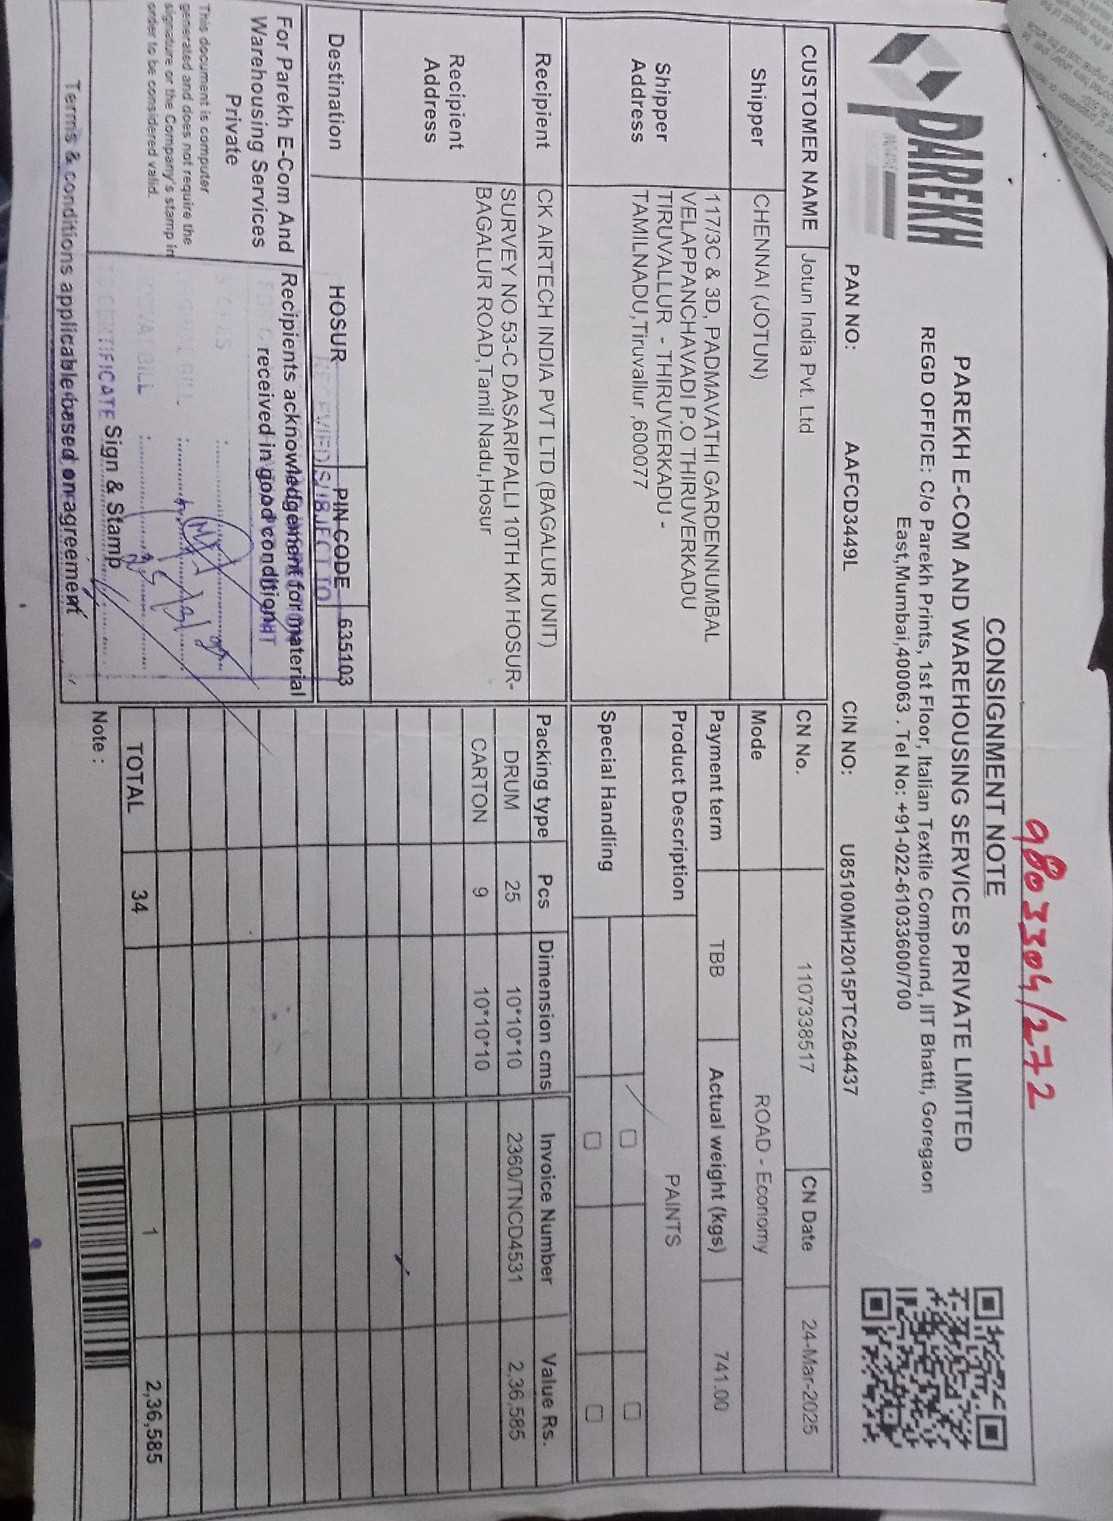 9803304/272
CONSIGNMENT NOTE
PAREKH
PAREKH E-COM AND WAREHOUSING SERVICES PRIVATE LIMITED
REGD OFFICE: C/o Parekh Prints, 1st Floor, Italian Textile Compound, IIT Bhatti, Goregaon
East,Mumbai,400063 . Tel No: +91-022-61033600/700
PAN NO: AAFCD3449L CIN NO: U85100MH2015PTC264437
CUSTOMER NAME Jotun India Pvt. Ltd
CN No. 1107338517 CN Date 24-Mar-2025
Shipper CHENNAI (JOTUN)
Mode ROAD - Economy
Shipper Address
117/3C & 3D, PADMAVATHI GARDENNUMBAL
VELAPPANCHAVADI P.O THIRUVERKADU
TIRUVALLUR - THIRUVERKADU -
TAMILNADU,Tiruvallur ,600077
Payment term TBB Actual weight (kgs) 741.00
Product Description PAINTS
Special Handling
Recipient CK AIRTECH INDIA PVT LTD (BAGALUR UNIT)
Recipient Address
SURVEY NO 53-C DASARIPALLI 10TH KM HOSUR-
BAGALUR ROAD,Tamil Nadu,Hosur
Packing type Pcs Dimension cms Invoice Number Value Rs.
DRUM 25 10*10*10 2360/TNCD4531 2,36,585
CARTON 9 10*10*10
Destination HOSUR PIN CODE 635103
RECEIVED SUBJECT TO
For Parekh E-Com And
Warehousing Services
Private
This document is computer
generated and does not require the
signature or the Company's stamp in
order to be considered valid.
Recipients acknowledgement for material
received in good condition
BILL
CERTIFICATE
Sign & Stamp
TOTAL 34 1 2,36,585
Note :
Terms & conditions applicable based on agreement